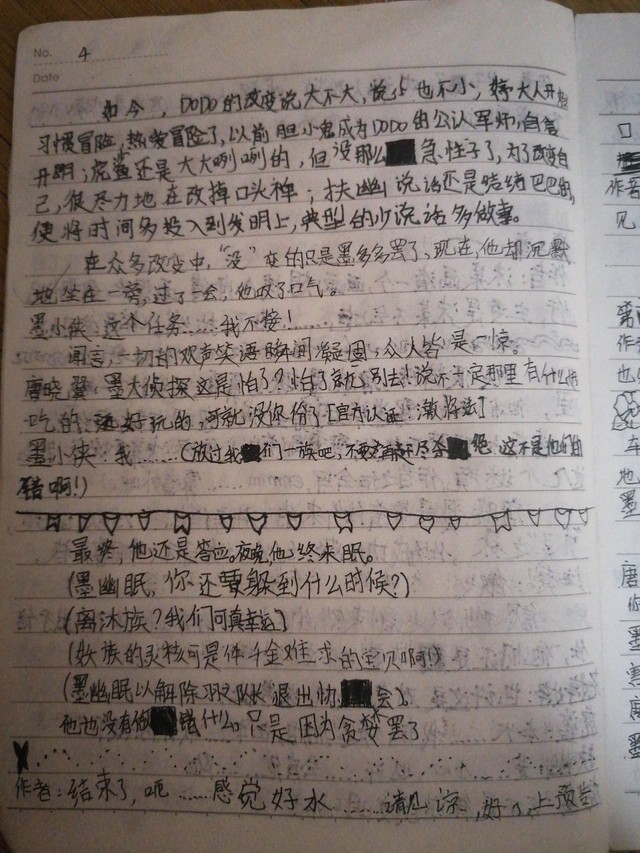 No. 4
Date
如今，DODO的改变说大不大，说小也不小，婷大人开始
习惯冒险，热爱冒险了，以前胆小鬼成为DODO的公认军师，自信
开朗；虎鲨还是大大咧咧的，但没那么急性子了，为了改变自
己，很尽力地在改掉口头禅；扶幽说话还是结结巴巴的，
使将时间多投入到发明上，典型的少说话多做事。
在众多改变中，“没”变的只是墨多多罢了，现在，他却沉默
地坐在一旁，过了一会，他叹了口气。
墨小侠：这个任务……我不接！
闻言，一切的欢声笑语瞬间凝固，众人皆是一惊。
唐晓翼：墨大侦探这是怕了？怕了就别去！说不定那里有什么好
吃的、好玩的，可就没你份了［官方认证：激将法］
墨小侠：我……（放过我们一族吧，不要赶尽杀绝，这不是他们的
错啊！）
最终，他还是答应。夜晚，他终未眠。
（墨幽眠，你还要躲到什么时候？）
（离沐族？我们可真幸运）
（妖族的灵核可是件千金难求的宝贝啊！）
（墨幽眠以解除羽队长退出协会）。
他也没有做错什么，只是因为贪婪罢了
作者：结束了，呃……感觉好水……请见谅，好了，上预告